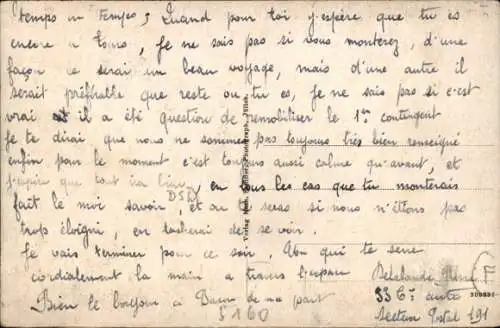 temps en temps, Quand pour toi j'espère que tu es
encore a Tours, Je ne sais pas si vous monterez, d'une
façon ce serai un beau voyage, mais d'une autre il
serait préférable que reste ou tu es, je ne sais pas si c'est
vrai il a été question de remobiliser le 1er contingent
Je te dirai que nous ne sommes pas toujours très bien renseigné
enfin pour le moment c'est toujours aussi calme qu'avant, et
j'espère que tout ira bien, en tous les cas que tu monterais
DSD
fait le moi savoir, et ou tu seras si nous n'étions pas
trop éloigné, on tacherai de se voir.
Je vais terminer pour ce soir. Ton qui te serre
cordialement la main a travers l'espace
Bien le bonjour a de ma part
5160
33 Cie
Secteur Postal 191
F